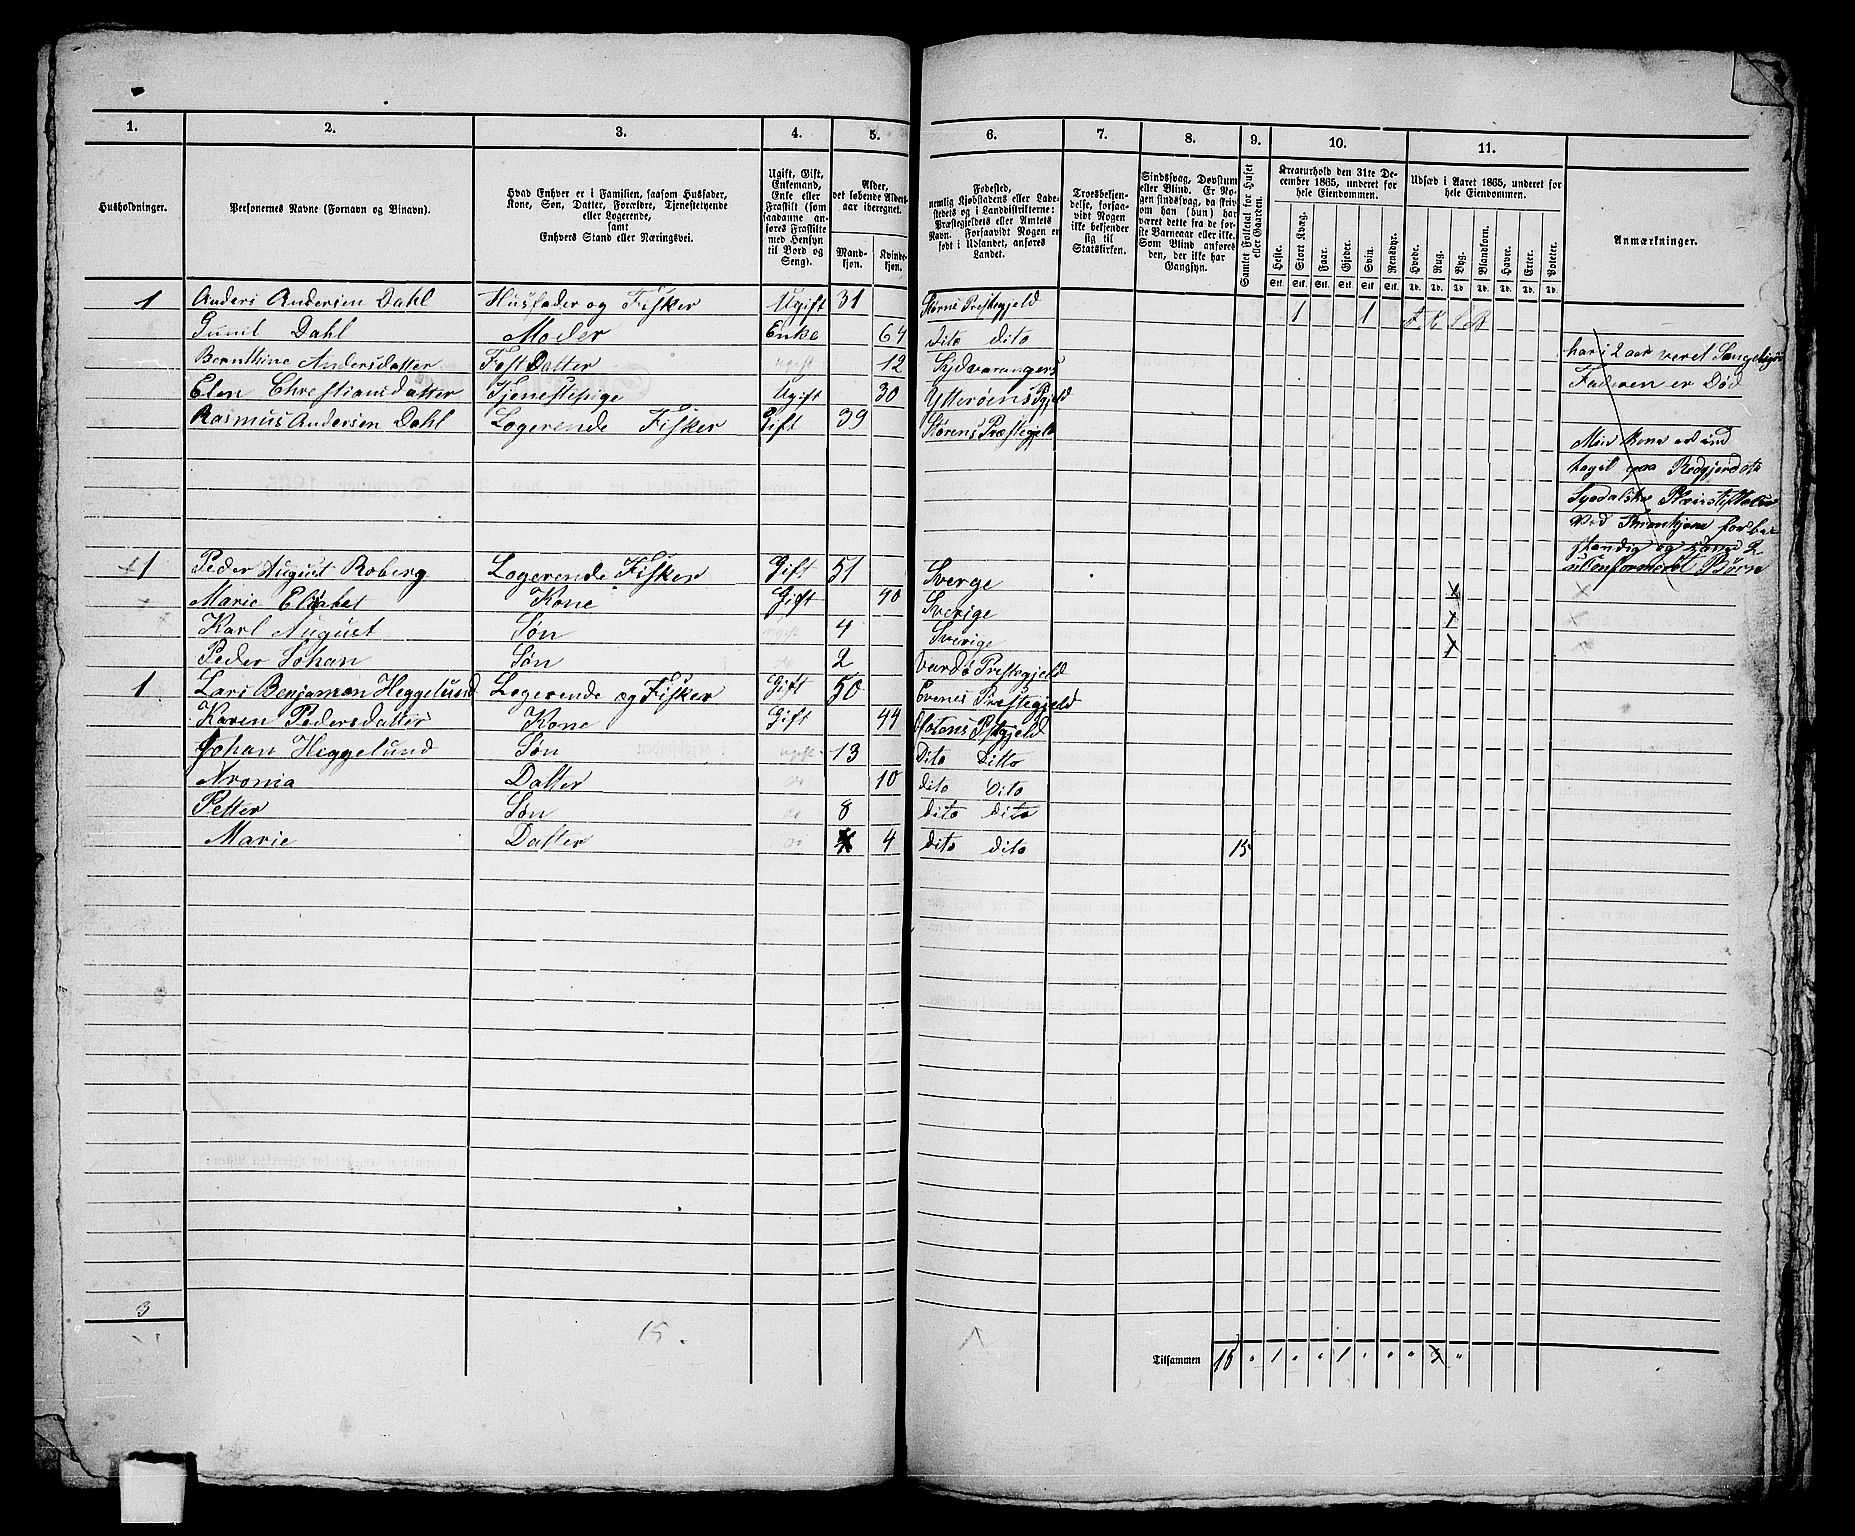 1. 2. 3. 4. 5. 6. 7. 8. 9. 10. 11.
Husholdninger.
Personernes Navne (Fornavn og Binavn).
Hvad Enhver er i Familien, saasom Husfader,
Kone, Søn, Datter, Forældre, Tjenestetyende
eller Logerende,
samt
Enhvers Stand eller Næringsvei.
Ugift, Gift,
Enkemand,
Enke eller
Fraskilt (som
saadanne an-
føres Fraskilte
med Hensyn
til Bord og
Seng).
Alder,
det løbende Alders-
aar iberegnet.
Mand-
kjøn.
Kvinde-
kjøn.
Fødested,
nemlig Kjøbstadens eller Lade-
stedets og i Landdistrikterne:
Præstegjeldets eller Amtets
Navn. Forsaavidt Nogen er
født i Udlandet, anføres
Landet.
Troesbekjen-
delse, forsaa-
vidt Nogen
ikke bekjender
sig til
Statskirken.
Sindssvag, Døvstum
eller Blind. Er No-
gen sindssvag, da skriv
om han (hun) har
været dette fra de før-
ste Barneaar eller ikke.
Som Blind anføres
den, der ikke har
Gangsyn.
Samlet Folketal for Huset
eller Gaarden.
Kreaturhold den 31te De-
cember 1865, underet for
hele Eiendommen.
Heste. Stort Kvæg. Faar. Gjeder. Svin. Rensdyr.
Stk. Stk. Stk. Stk. Stk. Stk.
Udsæd i Aaret 1865, underet for
hele Eiendommen.
Hvede. Rug. Byg. Blandkorn. Havre. Erter. Poteter.
Td. Td. Td. Td. Td. Td. Td.
Anmærkninger.
1 Anders Andersen Dahl Husfader og Fisker Ugift 31 Størns Prestegjeld 1 1
Gunil Dahl Moder Enke 64 dito dito
Bernthine Andersdatter FostDatter ugift 12 Sydvarangers har i 2 aar veret
Elen Chrestiansdatter Tjenestepige Ugift 30 Ytterøens Pgjeld Faderen er Død
Rasmus Andersen Dahl Logerende Fisker Gift 39 Størens Præstegjeld
Min Kona
paa
Ved
og
Børn
1 Peder August Roberg Logerende Fisker Gift 51 Sverge
Marie Elisabet Kone Gift 40 Sverige x
Karl August Søn ugift 4 Sverige x
Peder Johan Søn do 2 Vardø Prestegjeld x
1 Lars Benjamen Heggelund Logerende og Fisker Gift 50 Evenes Prestegjeld
Karen Pedersdatter Kone Gift 44 Ofotens Pstgjeld
Johan Heggelund Søn ugift 13 Dito Ditto
Nronia Datter do 10 dito dito
Petter Søn do 8 dito dito
Marie Datter do 4 dito dito 15
3
15.
Tilsammen 15 " 1 " " 1 " " "